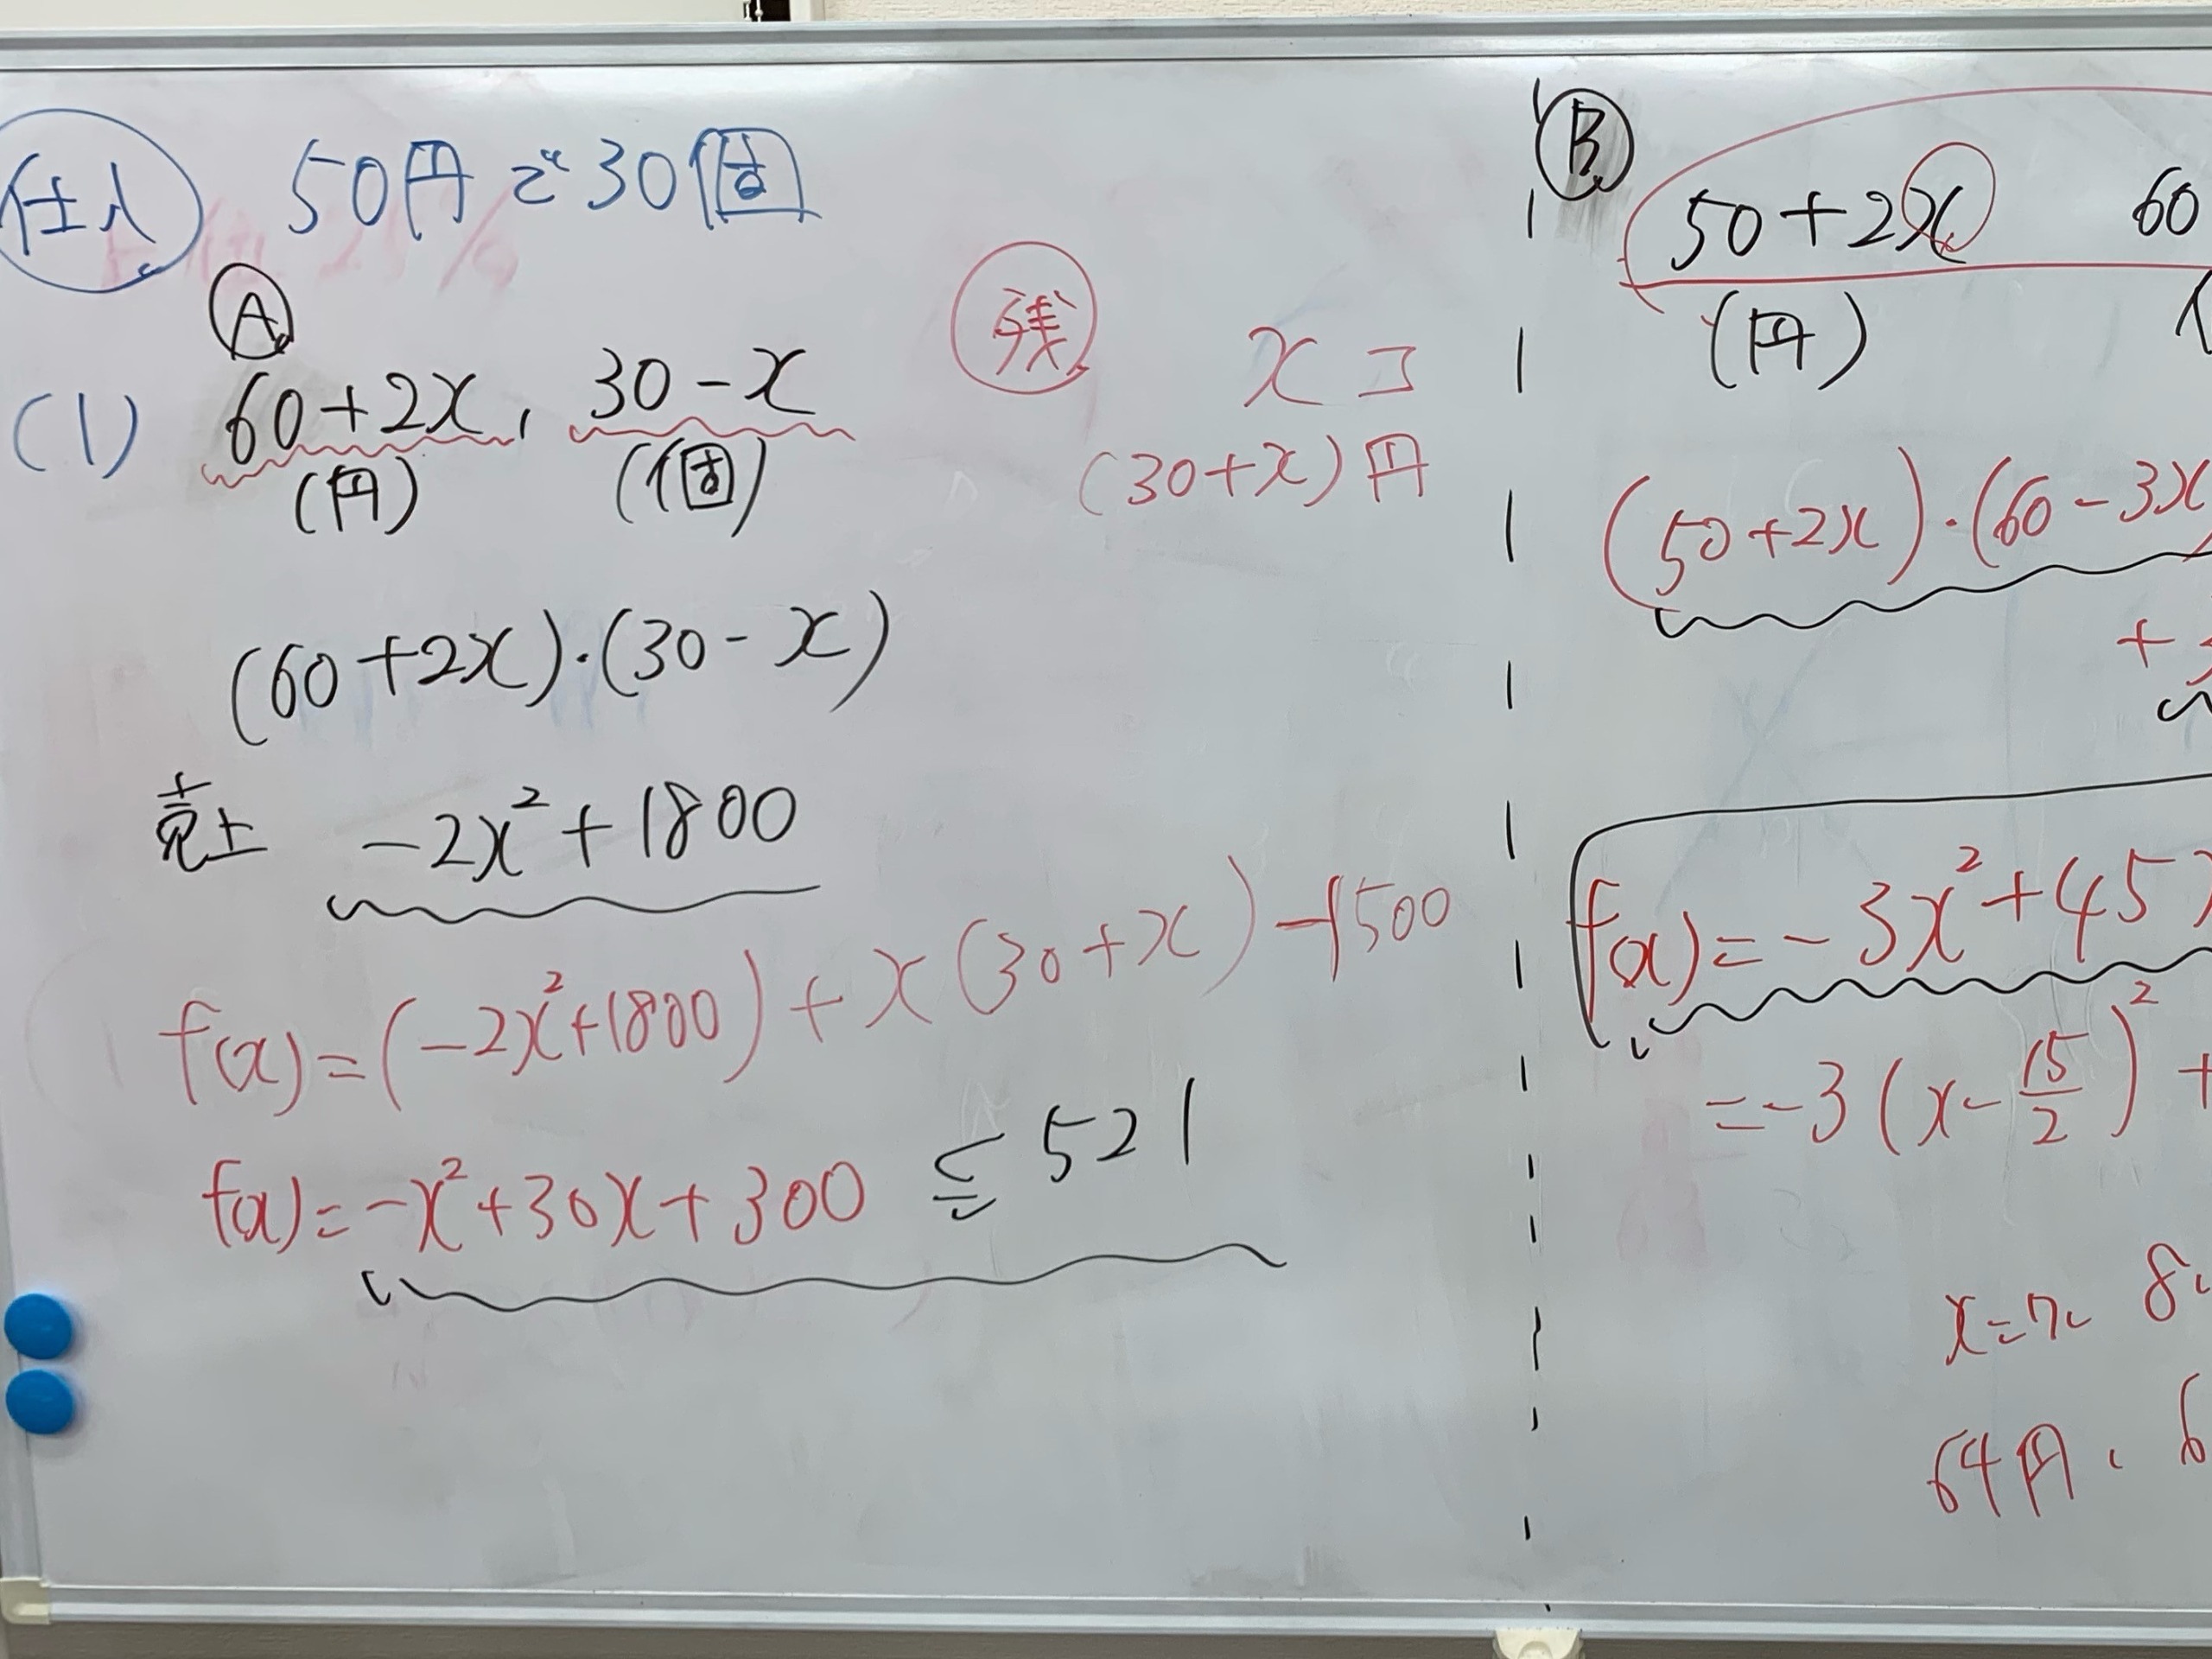 仕入 50円で30個
Ⓐ
(1) 60+2x, 30-x
(円) (個)
残 xコ
(30+x)円
(60+2x)・(30-x)
売上 -2x²+1800
f(x)=(-2x²+1800)+x(30+x)-1500
f(x)=-x²+30x+300 ≦ 521
Ⓑ
50+2x 60
(円) (
(50+2x)・(60-3x
+
f(x)=-3x²+45x
=-3(x-15/2)²+
x=7、8、
64円、6